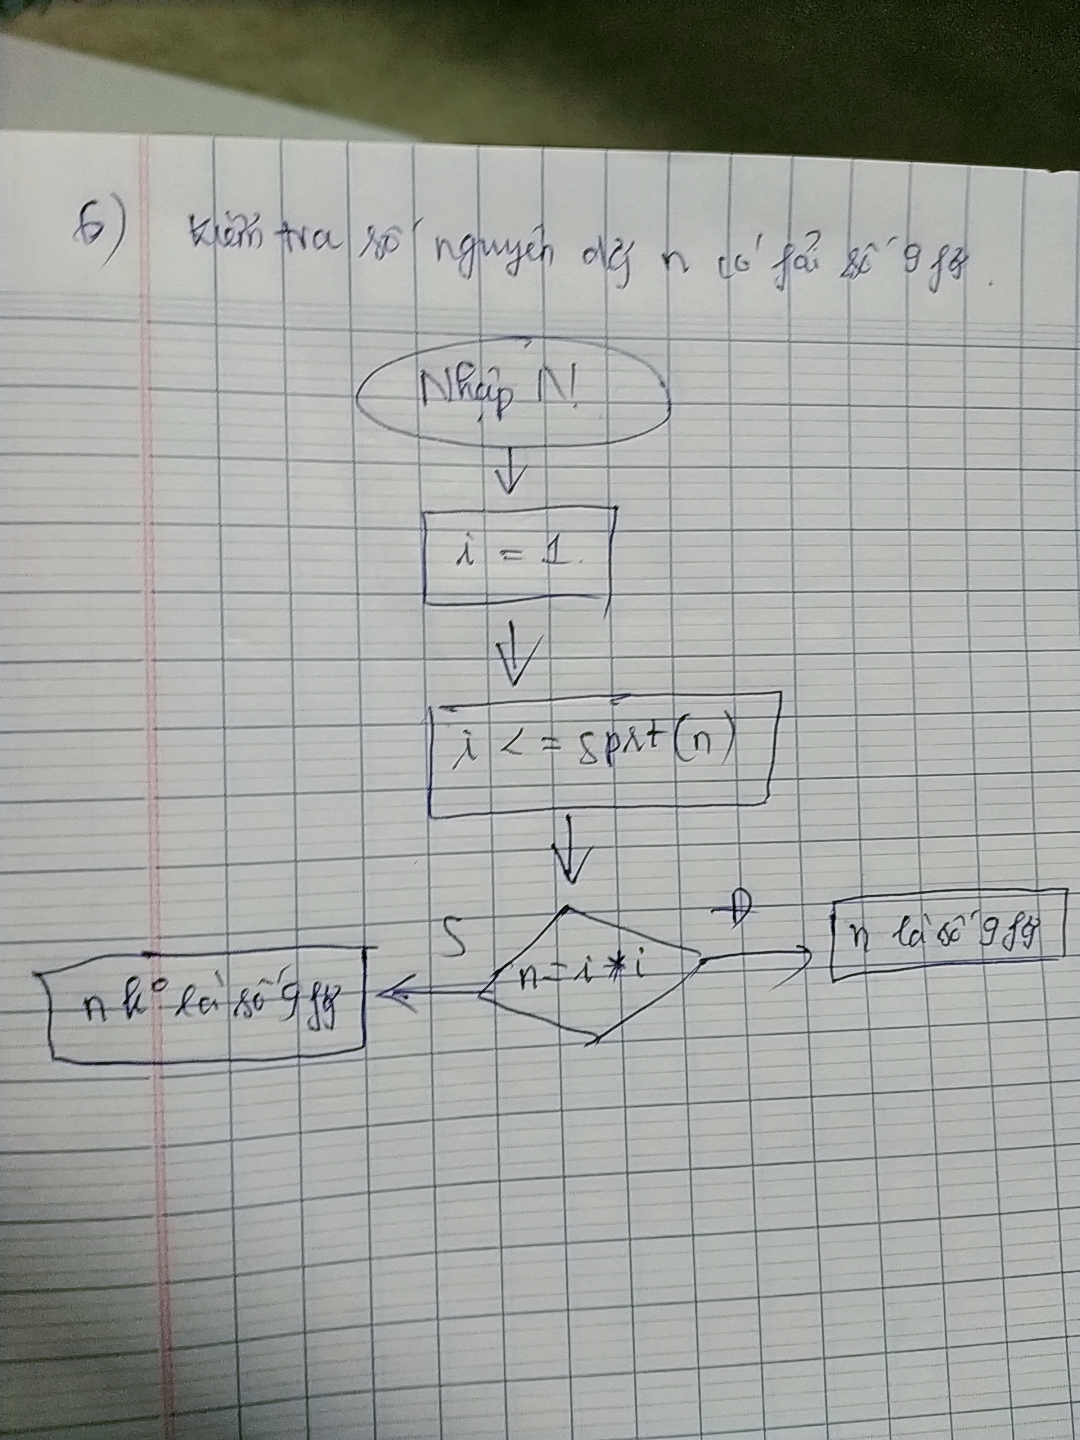 6) kiểm tra số nguyên dg n có fải số 9 fg.
Nhập N!
i = 1.
i <= sprt(n)
S
Đ
n = i * i
n là số 9 fg
n k° là số 9 fg